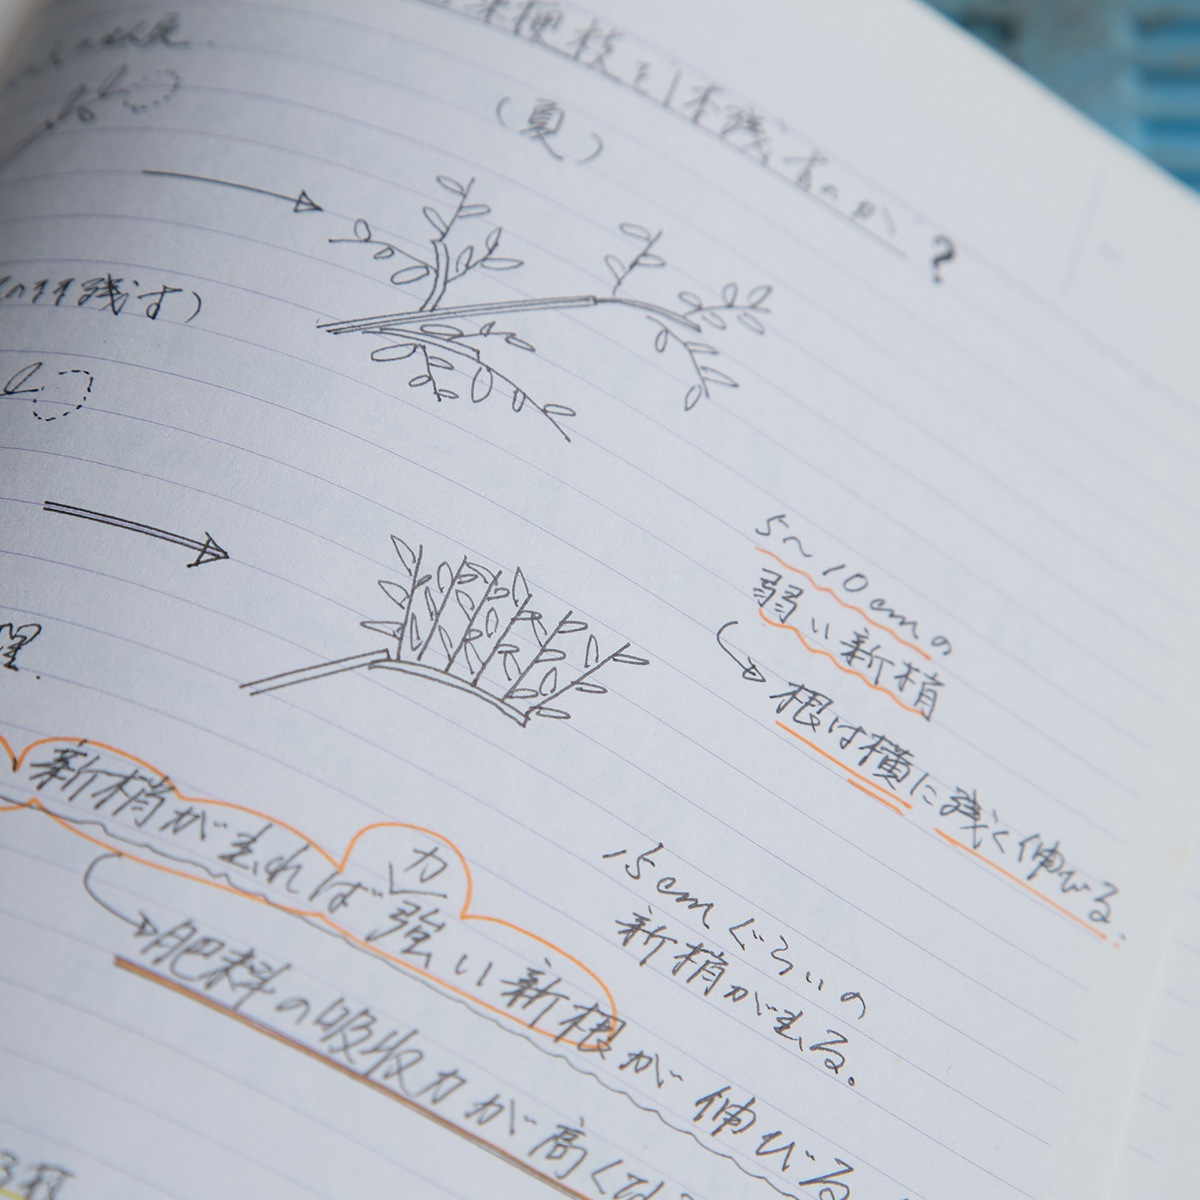 枝を1本残すのか?
(夏)
のまま残す)
5〜10cmの
弱い新梢
根は横に残く伸びる.
新梢が出れば力強い新根が伸びる
15cmぐらいの
新梢が出る.
肥料の吸収力が高くな